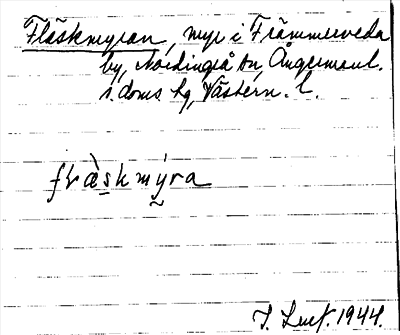 Fläskmyran, myr i Främmerveda
by, Nordingrå sn, Ångermanl.
s. doms. hg, Västern. l.
fræ̀skmýra
1944.